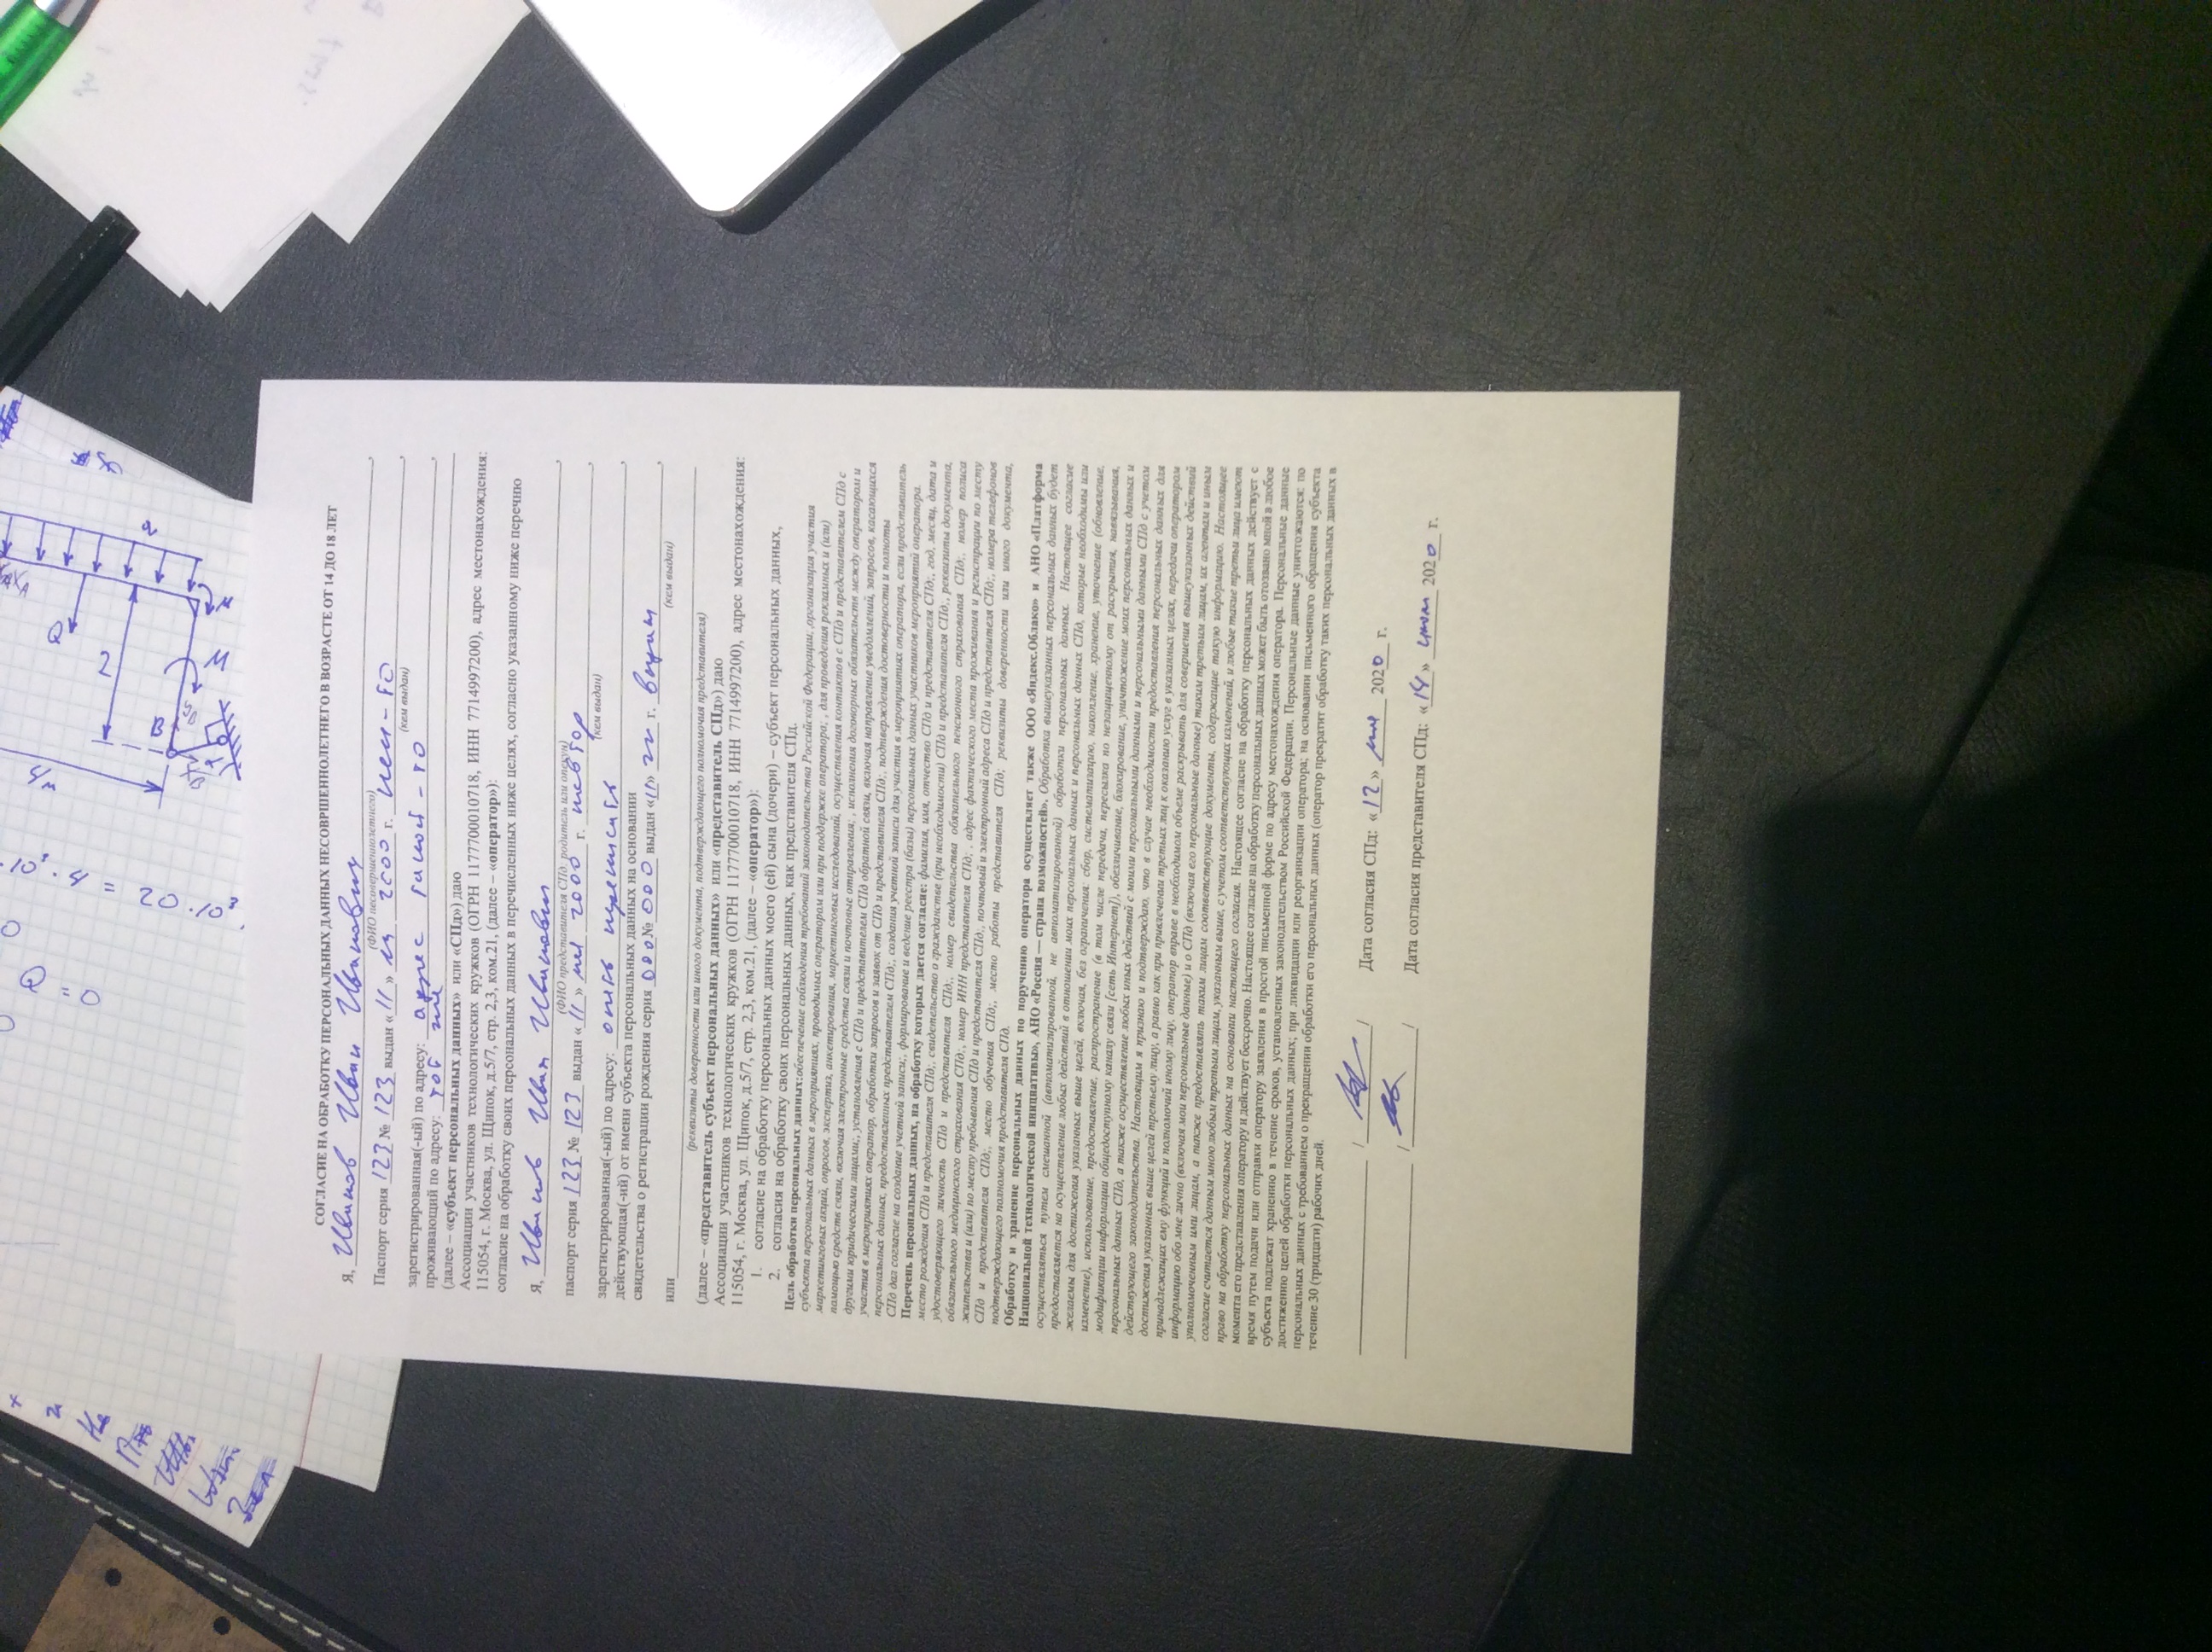 ·10³·4 = 20·10³
Q = 0
4м
Q
2
B
M
СОГЛАСИЕ НА ОБРАБОТКУ ПЕРСОНАЛЬНЫХ ДАННЫХ НЕСОВРШЕННОЛЕТНЕГО В ВОЗРАСТЕ ОТ 14 ДО 18 ЛЕТ
Я, Иванов Иван Иванович,
(ФИО несовершеннолетнего)
Паспорт серия 123 № 123 выдан «11» 2000 г. кем-то,
(кем выдан)
зарегистрированная(-ый) по адресу: адрес такой-то,
проживающий по адресу: тот же
(далее – «субъект персональных данных» или «СПд») даю
Ассоциации участников технологических кружков (ОГРН 1177700010718, ИНН 7714997200), адрес местонахождения:
115054, г. Москва, ул. Щипок, д.5/7, стр. 2,3, ком.21, (далее – «оператор»):
согласие на обработку своих персональных данных в перечисленных ниже целях, согласно указанному ниже перечню
Я, Иванов Иван Иванович,
(ФИО представителя СПд, родитель или опекун)
паспорт серия 123 № 123 выдан «11» 2000 г. повтор,
(кем выдан)
зарегистрированная(-ый) по адресу: опять,
действующая(-ий) от имени субъекта персональных данных на основании
свидетельства о регистрации рождения серия 000 № 000 выдан «11» г.,
(кем выдан)
или
(реквизиты доверенности или иного документа, подтверждающего полномочия представителя)
(далее – «представитель субъект персональных данных» или «представитель СПд») даю
Ассоциации участников технологических кружков (ОГРН 1177700010718, ИНН 7714997200), адрес местонахождения:
115054, г. Москва, ул. Щипок, д.5/7, стр. 2,3, ком.21, (далее – «оператор»):
1. согласие на обработку персональных данных моего (ей) сына (дочери) – субъект персональных данных,
2. согласия на обработку своих персональных данных, как представителя СПд.
Цель обработки персональных данных:обеспечение соблюдения требований законодательства Российской Федерации; ,организация участия
субъекта персональных данных в мероприятиях, проводимых оператором или при поддержке оператора; , для проведения рекламных и (или)
маркетинговых акций, опросов, экспертиз, анкетирования, маркетинговых исследований, осуществления контактов с СПд и представителем СПд с
помощью средств связи, включая электронные средства связи и почтовые отправления; , исполнения договорных обязательств между оператором и
другими юридическими лицами;, установления с СПд и представителем СПд обратной связи, включая направление уведомлений, запросов, касающихся
участия в мероприятиях оператор, обработки запросов и заявок от СПд и представителя СПд;, подтверждения достоверности и полноты
персональных данных, предоставленных представителем СПд;, создания учетной записи для участия в мероприятиях оператора, если представитель
СПд дал согласие на создание учетной записи;, формирование и ведение реестра (базы) персональных данных участников мероприятий оператора.
Перечень персональных данных, на обработку которых дается согласие: фамилия, имя, отчество СПд и представителя СПд;, год, месяц, дата и
место рождения СПд и представителя СПд;, свидетельство о гражданстве (при необходимости) СПд и представителя СПд;, реквизиты документа,
удостоверяющего личность СПд и представителя СПд;, номер свидетельства обязательного пенсионного страхования СПд;, номер полиса
обязательного медицинского страхования СПд;, номер ИНН представителя СПд; , адрес фактического места проживания и регистрации по месту
жительства и (или) по месту пребывания СПд и представителя СПд;, почтовый и электронный адреса СПд и представителя СПд;, номера телефонов
СПд и представителя СПд;, место обучения СПд;, место работы представителя СПд; реквизиты доверенности или иного документа,
подтверждающего полномочия представителя СПд.
Обработку и хранение персональных данных по поручению оператора осуществляет также ООО «Яндекс.Облако» и АНО «Платформа
Национальной технологической инициативы», АНО «Россия — страна возможностей». Обработка вышеуказанных персональных данных будет
осуществляться путем смешанной (автоматизированной, не автоматизированной) обработки персональных данных. Настоящее согласие
предоставляется на осуществление любых действий в отношении моих персональных данных и персональных данных СПд, которые необходимы или
желаемы для достижения указанных выше целей, включая, без ограничения: сбор, систематизацию, накопление, хранение, уточнение (обновление,
изменение), использование, предоставление, распространение (в том числе передача, пересылка по незащищенному от раскрытия, навязывания,
модификации информации общедоступному каналу связи [сеть Интернет]), обезличивание, блокирование, уничтожение моих персональных данных и
персональных данных СПд, а также осуществление любых иных действий с моими персональными данными и персональными данными СПд с учетом
действующего законодательства. Настоящим я признаю и подтверждаю, что в случае необходимости предоставления персональных данных для
достижения указанных выше целей третьему лицу, а равно как при привлечении третьих лиц к оказанию услуг в указанных целях, передачи оператором
принадлежащих ему функций и полномочий иному лицу, оператор вправе в необходимом объеме раскрывать для совершения вышеуказанных действий
информацию обо мне лично (включая мои персональные данные) и о СПд (включая его персональные данные) таким третьим лицам, их агентам и иным
уполномоченным ими лицам, а также предоставлять таким лицам соответствующие документы, содержащие такую информацию. Настоящее
согласие считается данным мною любым третьим лицам, указанным выше, с учетом соответствующих изменений, и любые такие третьи лица имеют
право на обработку персональных данных на основании настоящего согласия. Настоящее согласие на обработку персональных данных действует с
момента его представления оператору и действует бессрочно. Настоящее согласие на обработку персональных данных может быть отозвано мной в любое
время путем подачи или отправки оператору заявления в простой письменной форме по адресу местонахождения оператора. Персональные данные
субъекта подлежат хранению в течение сроков, установленных законодательством Российской Федерации. Персональные данные уничтожаются: по
достижению целей обработки персональных данных; при ликвидации или реорганизации оператора; на основании письменного обращения субъекта
персональных данных с требованием о прекращении обработки его персональных данных (оператор прекратит обработку таких персональных данных в
течение 30 (тридцати) рабочих дней.
/ / Дата согласия СПд: «12» мая 2020 г.
/ / Дата согласия представителя СПд: «14» 2020 г.